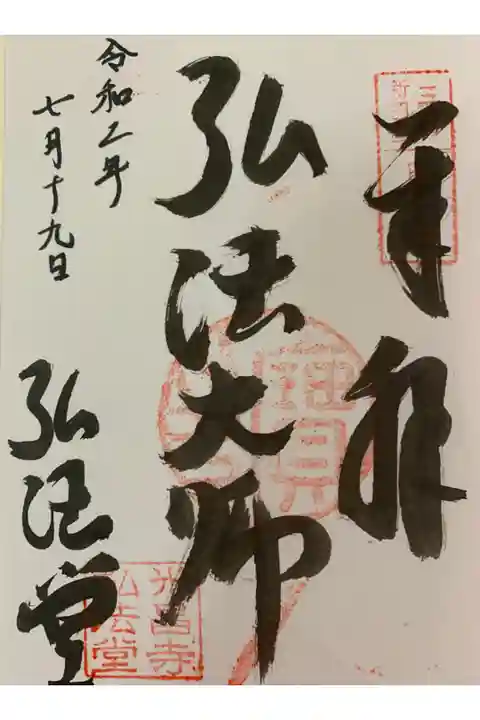 奉拜
弘法大師
令和二年
七月十九日
弘法堂
光昌寺
弘法堂